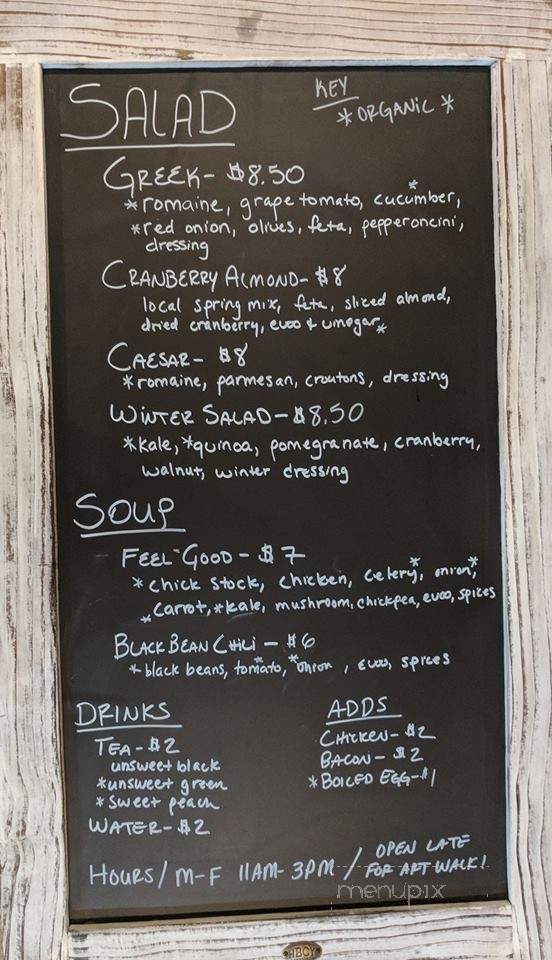 SALAD
KEY
*ORGANIC*
GREEK- $8.50
*romaine, grape tomato, cucumber*,
*red onion, olives, feta, pepperoncini,
dressing
CRANBERRY ALMOND- $8
local spring mix, feta, sliced almond,
dried cranberry, evoo & vinegar*
CAESAR- $8
*romaine, parmesan, croutons, dressing
WINTER SALAD- $8.50
*kale, *quinoa, pomegranate, cranberry,
walnut, winter dressing
SOUP
FEEL GOOD - $7
*chick stock, chicken, celery*, onion*,
*carrot, *kale, mushroom, chickpea, evoo, spices
BLACK BEAN CHILI - $6
*black beans, tomato*, *onion, evoo, spices
DRINKS
TEA- $2
unsweet black
*unsweet green
*sweet peach
WATER- $2
ADDS
CHICKEN- $2
BACON- $2
*BOILED EGG- $1
HOURS/ M-F 11AM-3PM / OPEN LATE
FOR ART WALK!
menupix
HBCY